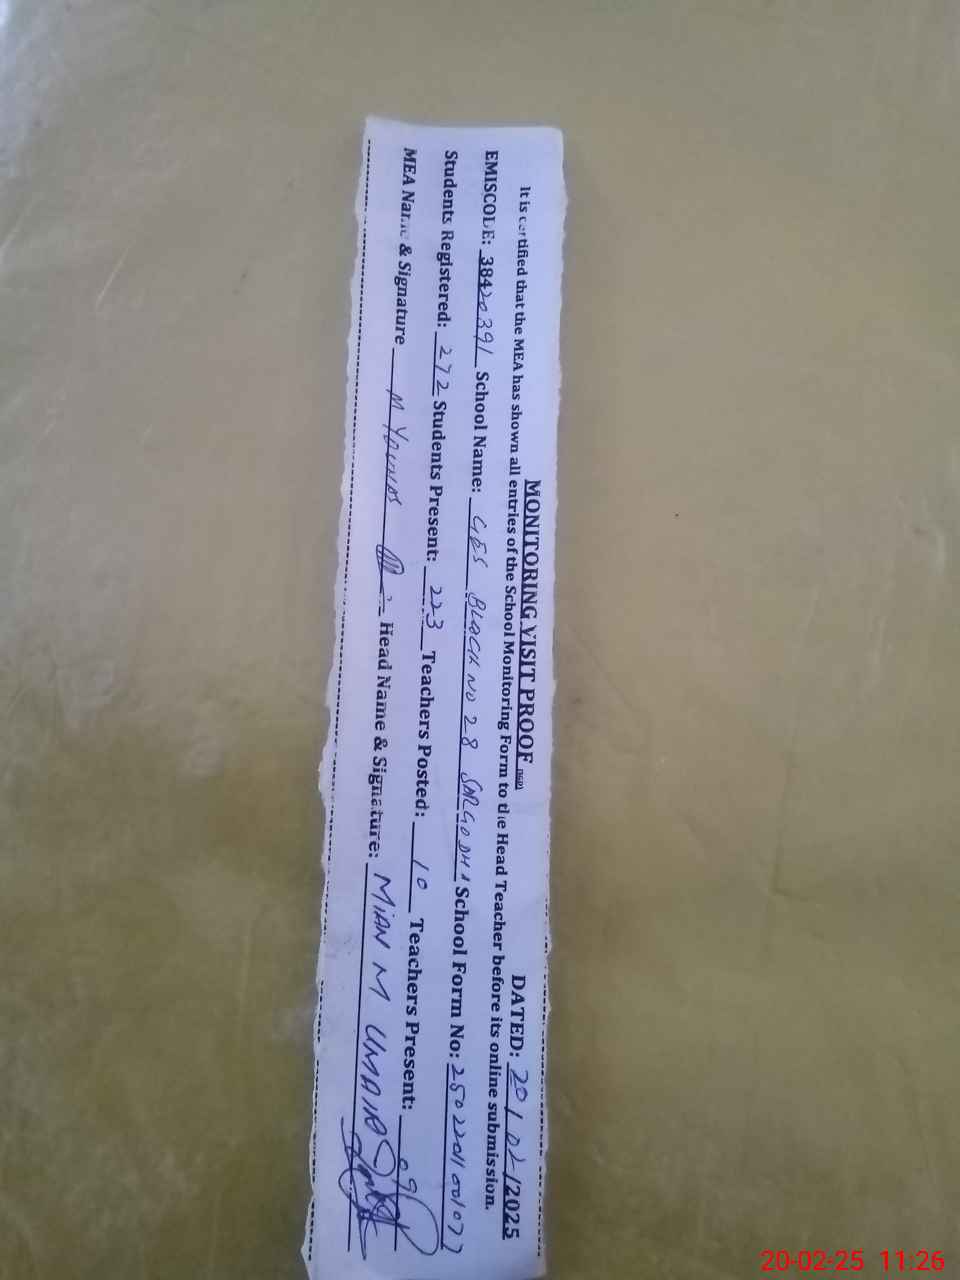 MONITORING VISIT PROOF
DATED: 20/02/2025
It is certified that the MEA has shown all entries of the School Monitoring Form to the Head Teacher before its online submission.
EMISCODE: 38420391 School Name: GES BLOCK NO 28 SARGODHA School Form No:
Students Registered: 272 Students Present: 223 Teachers Posted: 10 Teachers Present: 09
MEA Name & Signature M YOUNAS Head Name & Signature: MIAN M UMAIR
20-02-25 11:26